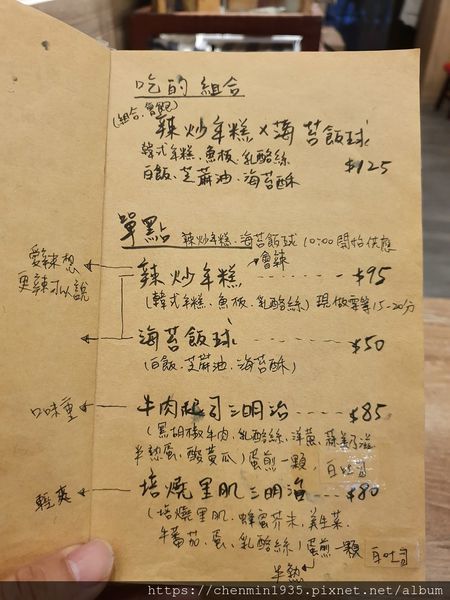 吃的組合
(組合.會飽)
辣炒年糕×海苔飯球
韓式年糕.魚板.乳酪絲 $125
白飯.芝蔴油.海苔酥
單點 辣炒年糕.海苔飯球 10:00開始供應
會辣
愛辣想
更辣可以說
辣炒年糕 ------- $95
(韓式年糕、魚板、乳酪絲) 現做需等15-20分
海苔飯球 ------ $50
(白飯.芝蔴油、海苔酥)
口味重 牛肉起司三明治 ---- $85
(黑胡椒牛肉、乳酪絲、洋蔥、蒜
半熟蛋、酸黃瓜) 蛋煎一顆, 白吐司
輕爽 培燒里肌三明治 --- $80
(培燒里肌.蜂蜜芥末.美生菜.
牛番茄.蛋、乳酪絲) 蛋煎一顆 白吐司
半熟
https://chenmin1935.pixnet.net/album